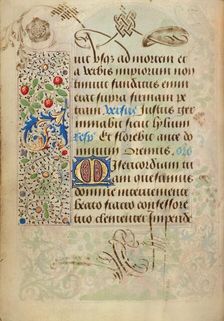 uit usqz ad mortem et
a verbis impiorum non
timuit fundatus enim
erat supra firmam pe
tram Versus Justus ger
minabit sicut lylium
Resp Et florebit ante do
minum Oremus. oro
Misericordiam tu
am quesumus
domine interveniente
beato
confessore
tuo clementer impende